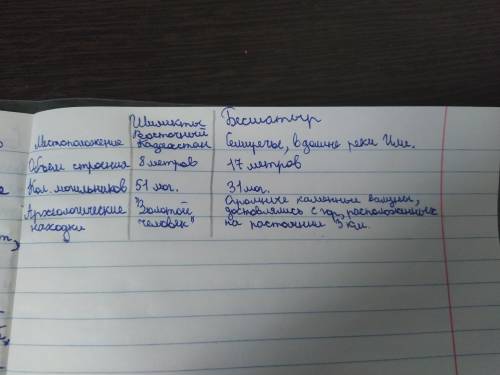 Шиликты Бесшатыр
Восточный
Местоположение Казахстан Семиречье, в долине реки Или.
Объём строения 8 метров 17 метров
Кол. могильников 51 мог. 31 мог.
Археологические "Золотой Огромные каменные валуны,
находки человек" доставлялись с гор, расположенных
на растоянии 3 км.